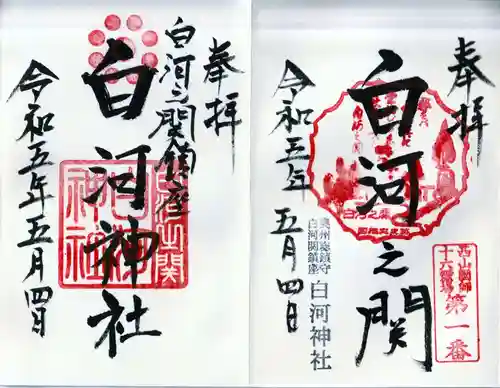 奉拝
白河之関鎮座
白河神社
令和五年五月四日
白河神社
鎮座之関
奉拝
白河之関
令和五年五月四日
奥州総鎮守
白河関鎮座
白河神社
西山国師
十六霊場
第一番